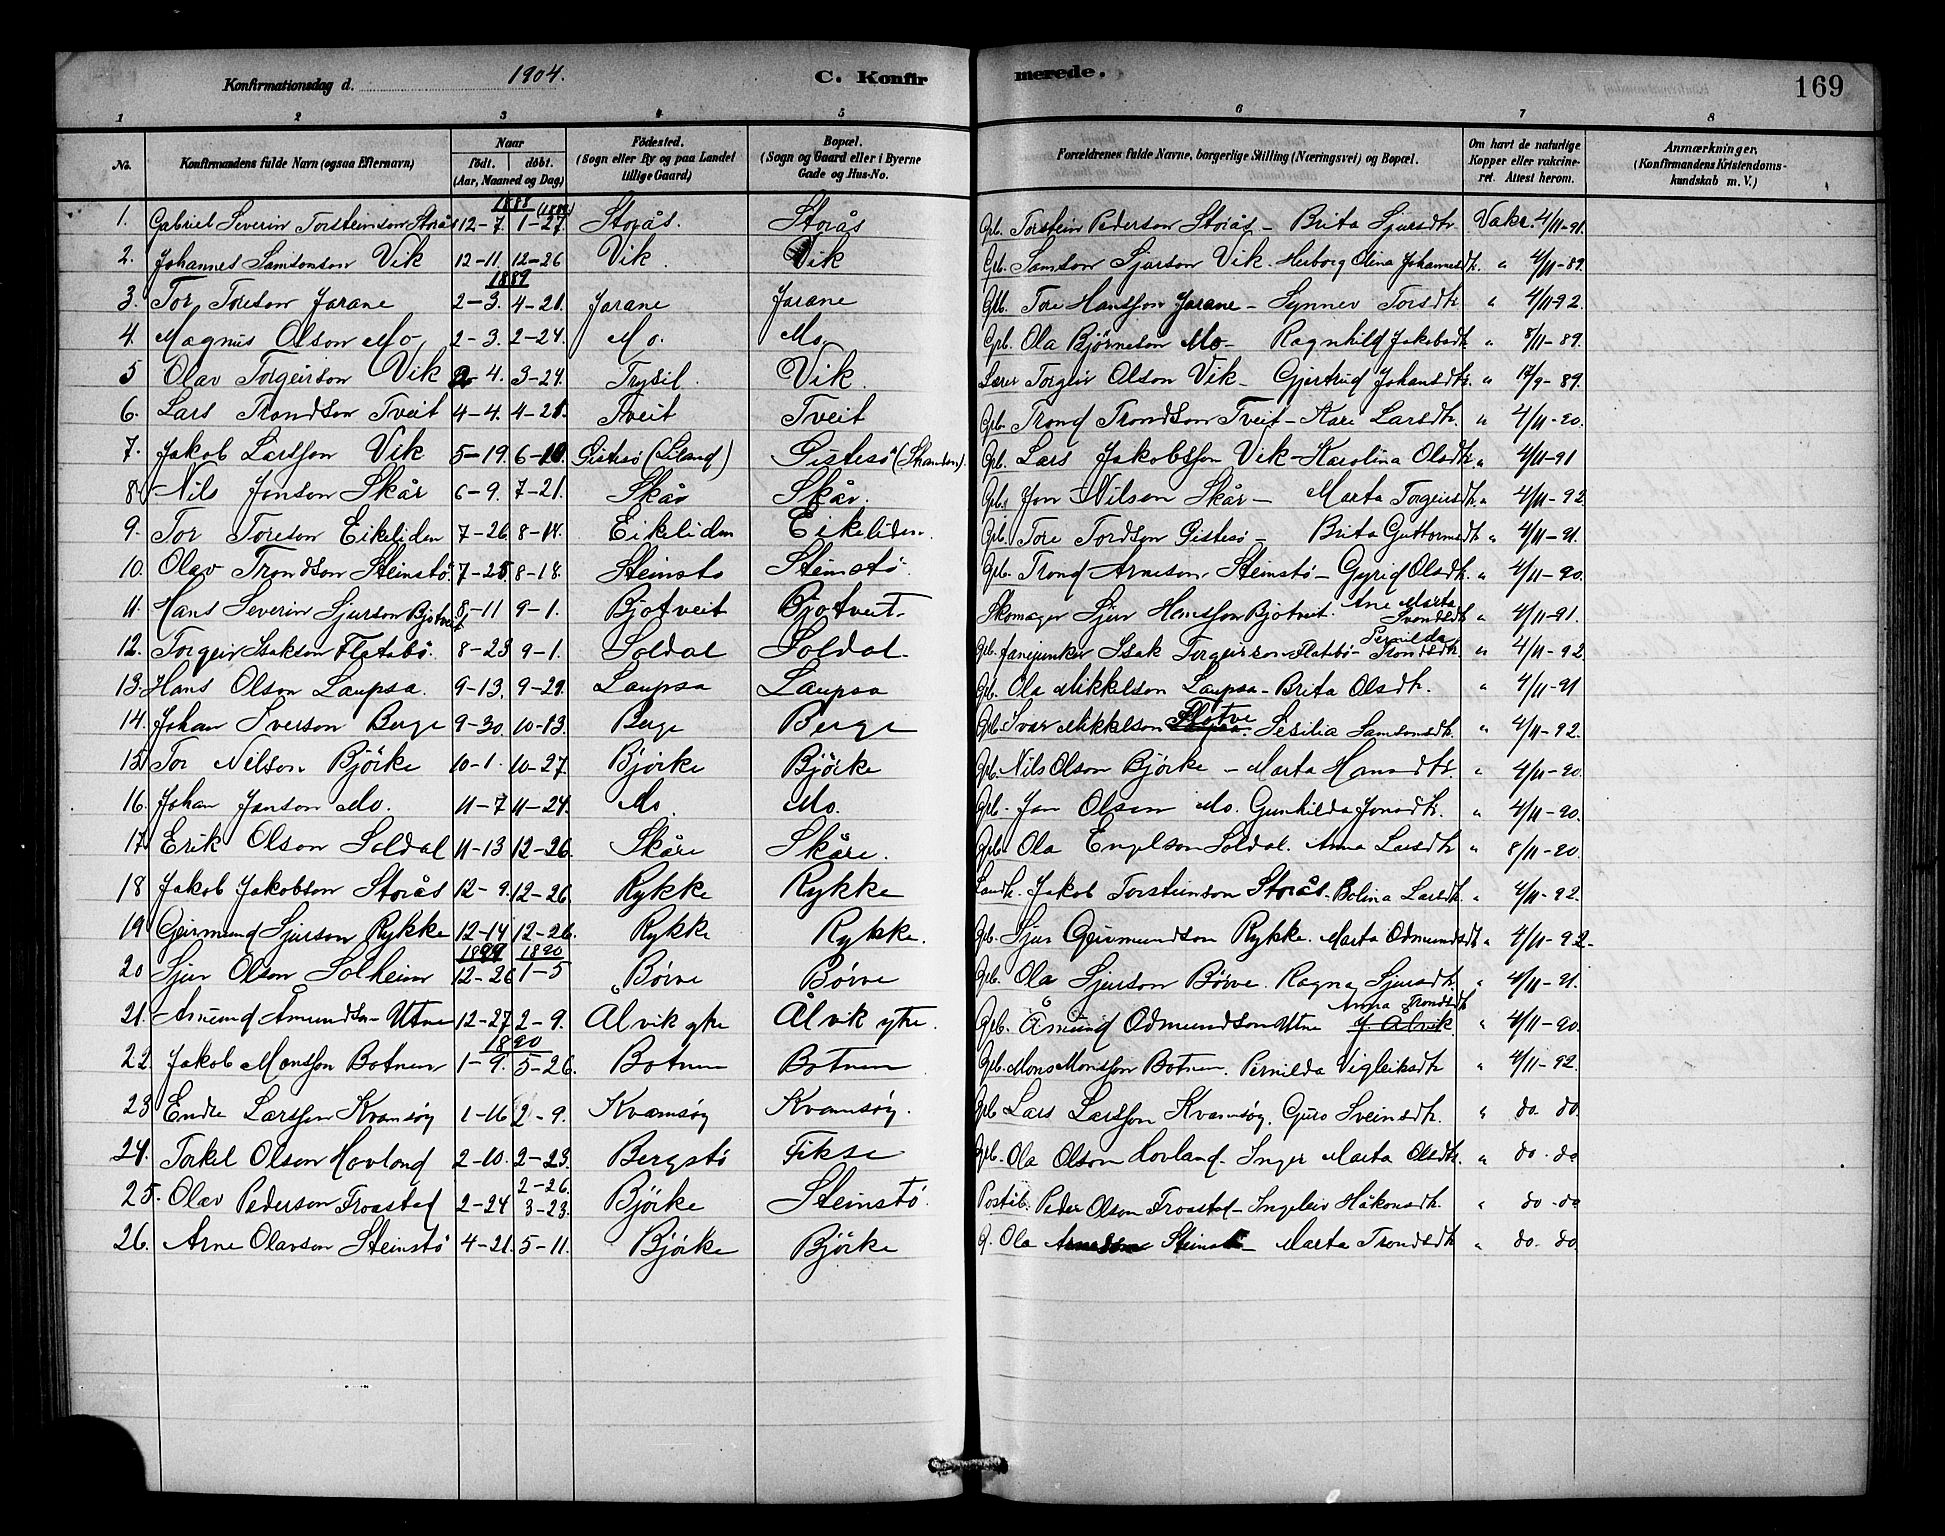 Konfirmationsdag d. 1904. C. Konfirmerede. 169
1 2 3 4 5 6 7 8
No. Konfirmandens fulde Navn (ogsaa Efternavn) Naar födt. döbt. (Aar, Maaned og Dag) Födested. (Sogn eller By og paa Landet tillige Gaard) Bopæl. (Sogn og Gaard eller i Byerne Gade og Hus-No. Forældrenes fulde Navne, borgerlige Stilling (Næringsvei) og Bopæl. Om havt de naturlige Kopper eller vakcineret. Attest herom. Anmærkninger, (Konfirmandens Kristendomskundskab m. V.)
1888 (1889)
1. Gabriel Severin Torsteinson Storås 12-7. 1-27. Storås. Storås Gb. Torstein Pederson Storås - Brita Sjursdtr. Vakc. 4/11-91.
2. Johannes Samsonson Vik 12-11. 12-26 Vik. Vik Gb. Samson Sjurson Vik - Herborg Olina Johannesdtr. " 4/11-89.
1889
3. Tor Toreson Jarane 2-3. 4-21. Jarane Jarane Gb. Tore Hansson Jarane - Synnev Torsdtr. " 4/11-92.
4. Magnus Olson Mo 2-3. 2-24. Mo. Mo Gb. Ola Björneson Mo - Ragnhild Jakobsdtr " 8/11-89.
5 Olav Torgeirson Vik 2-4. 3-24. Trysil. Vik. Lærer Torgeir Olson Vik - Gjertrud Johansdtr. " 12/9-89.
6. Lars Trondson Tveit 4-4. 4-21. Tveit Tveit Gb. Trond Trondson Tveit - Kari Larsdtr. " 4/11-90.
7. Jakob Larsson Vik 5-19. 6-10. Östesö Östesö Gb. Lars Jakobsson Vik - Karolina Olsdtr " 4/11-91
8. Nils Jonson Skår 6-9. 7-21. Skår Skår. Gb. Jon Nilson Skår - Marta Torgeirsdtr. " 4/11-92
9. Tor Toreson Eikeliden 7-26. 8-14. Eikeliden Eikeliden. Gb. Tore Tordson Östesö - Brita Guttormsdtr " 4/11-91.
10. Olav Trondson Steinstö 7-25. 8-18. Steinstö Steinstö Gb. Trond Arneson Steinstö - Gyrid Olsdtr. " 4/11-90.
11. Hans Severin Sjurson Bjotveit 8-11 9-1. Bjotveit Bjotveit. Skomager Sjur Hansson Bjotveit. Ane Marta Svendsdtr " 4/11-91.
12. Torgeir Isakson Flatabö. 8-23 9-1. Soldal Soldal. Gb. fanejunker Isak Torgeirson Flatabö - Pernilda Trondsdtr. " 4/11-92
13. Hans Olson Laupsa. 9-13. 9-29. Laupsa Laupsa Gb. Ola Mikkelson Laupsa - Brita Olsdtr. " 4/11-91
14. Johan Iverson Berge 9-30. 10-13. Berge Berge Gb. Ivar Mikkelson Flotve Sesilia Samsonsdtr. " 4/11-92.
15. Tor Nilson Björke 10-1. 10-27. Björke Björke Gb. Nils Olson Björke - Marta Hansdtr. " 4/11-90.
16. Johan Janson Mo. 11-7 11-24. Mo. Mo. Gb. Jan Olson Mo. Gunhilda Jonsdtr. " 4/11-90.
17. Erik Olson Soldal 11-13 12-26. Skåre Skåre. Gb. Ola Engelson Soldal. Anna Larsdtr " 8/11-90.
18 Jakob Jakobson Storås 12-9. 12-26. Rykke Rykke Landh. Jakob Torsteinson Storås. Bolina Larsdtr. " 4/11-92.
19 Geirmund Sjurson Rykke 12-14 12-26. Rykke Rykke. Gb. Sjur Geirmundson Rykke. Marta Odmundsdtr " 4/11-92.
1889 1890
20 Sjur Olson Solheim 12-26 1-5 Börve Börve Gb. Ola Sjurson Börve. Ragna Sjursdtr. " 4/11-91.
21. Åmund Åmundson Utne 12-27 2-9. Ålvik ytre Ålvik ytre. Gb. Åmund Odmundson Utne Anna Trondsdtr J. Alvik. " 4/11-90.
1890
22. Jakob Monsson Botnen 1-9. 5-26. Botnen Botnen Gb. Mons Monsson Botnen. Pernilda Vigleiksdtr " 4/11-92.
23. Endre Larsson Kvamsöy 1-16 2-9. Kvamsöy Kvamsöy. Gb. Lars Larsson Kvamsöy. Guro Sveinsdtr. " do. do.
24. Torkel Olson Hovland 2-10. 2-23. Bergstö Fikse Gb. Ola Olson Hovland - Inger Marta Olsdtr. " do. do
25. Olav Pederson Froastad 2-24 2-26. 3-23. Björke Steinstö. Postib. Peder Olson Froastad - Ingeleiv Håkonsdtr. " do. do
26. Arne Olavson Steinstö 4-21. 5-11. Björke Björke G. Ola Arneson Steinstö - Marta Trondsdtr " do. do.